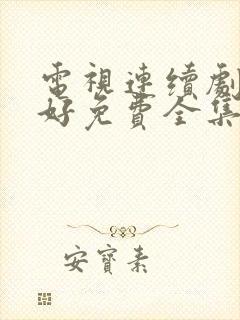 電視連續劇
好免費全集
安寶素